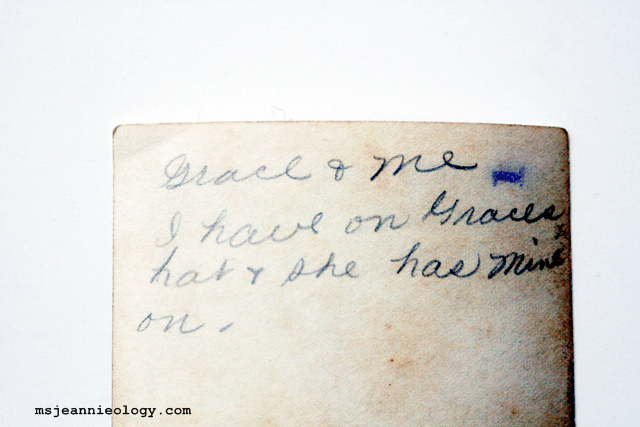 Grace & me
I have on Graces
hat & she has mine
on.
msjeannieology.com